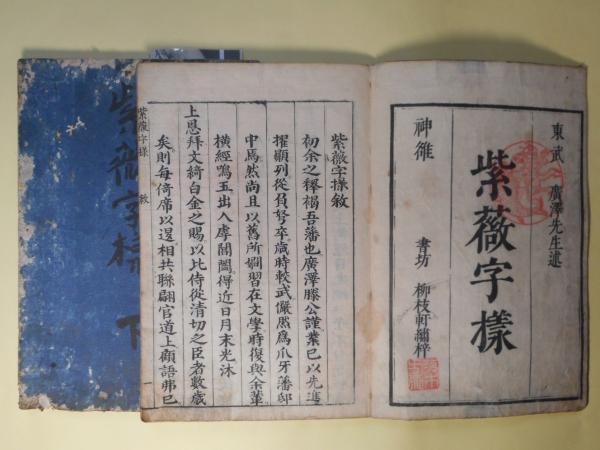 東武 廣澤先生述
紫薇字様
神雒 書坊 柳枝軒繡梓
紫薇字様敘
初余之釋褐吾藩也廣澤滕公謹業已以先進
擢顯列從負弩卒歲時較武儼然爲爪牙藩邸
中焉然尚且以舊所嫺習在文學時復與余輩
橫經鳴玉出入虖閶闔得近日月末光沐
上恩拜文綺白金之賜以比侍從清切之臣者數歲
矣則每倚席以逯相共聯翩官道上顧語弗已
紫薇字様 敘 一
紫薇字様 下